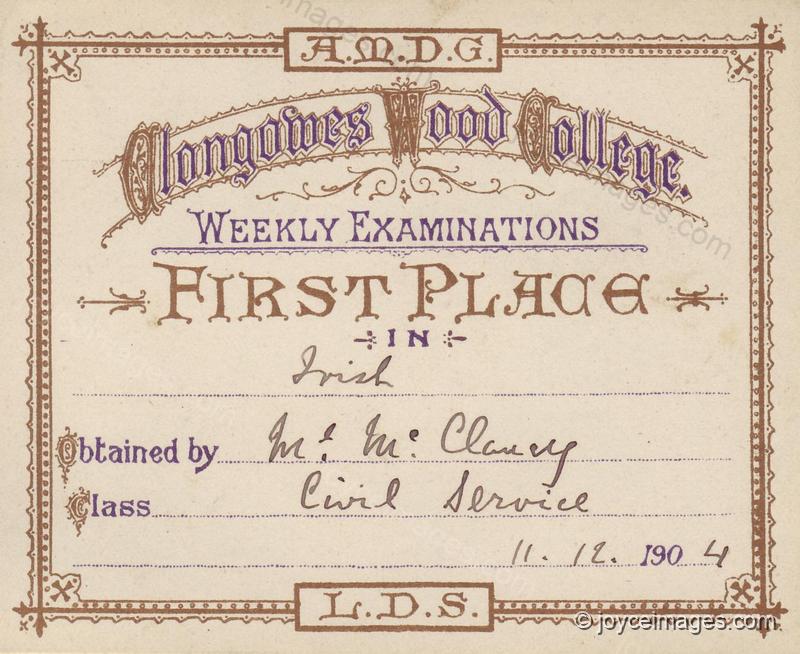 A.M.D.G.
Clongowes Wood College.
WEEKLY EXAMINATIONS
FIRST PLACE
IN
Irish
Obtained by Mr. Mc Clancy
Class Civil Service
11. 12. 1904
L.D.S.
© joyceimages.com